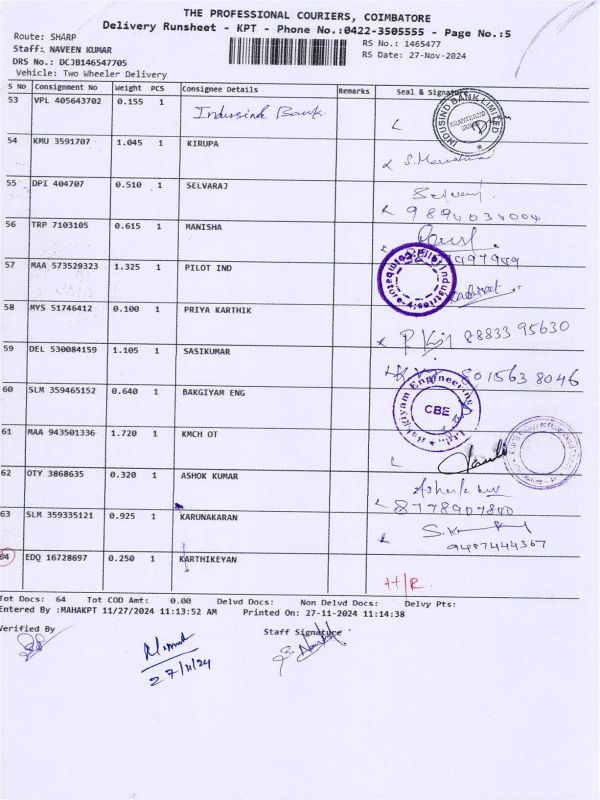 THE PROFESSIONAL COURIERS, COIMBATORE
Delivery Runsheet - KPT - Phone No.:0422-3505555 - Page No.:5
Route: SHARP
RS No.: 1465477
Staff: NAVEEN KUMAR
RS Date: 27-Nov-2024
DRS No.: DCJB146547705
Vehicle: Two Wheeler Delivery
S No Consignment No Weight PCS Consignee Details Remarks Seal & Signature
53 VPL 405643702 0.155 1 Indusind Bank
INDUSIND BANK LIMITED
54 KMU 3591707 1.045 1 KIRUPA
55 DPI 404707 0.510 1 SELVARAJ
9894034004
56 TRP 7103105 0.615 1 MANISHA
57 MAA 573529323 1.325 1 PILOT IND
58 MYS 51746412 0.100 1 PRIYA KARTHIK
88833 95630
59 DEL 530084159 1.105 1 SASIKUMAR
801563 8046
60 SLM 359465152 0.640 1 BAKGIYAM ENG
Bakgiyam Engineering
CBE
61 MAA 943501336 1.720 1 KMCH OT
62 OTY 3868635 0.320 1 ASHOK KUMAR
8778907840
63 SLM 359335121 0.925 1 KARUNAKARAN
9487444367
64 EDQ 16728697 0.250 1 KARTHIKEYAN
H/R.
Tot Docs: 64 Tot COD Amt: 0.00 Delvd Docs: Non Delvd Docs: Delvy Pts:
Entered By :MAHAKPT 11/27/2024 11:13:52 AM Printed On: 27-11-2024 11:14:38
Verified By
Staff Signature
27/11/24